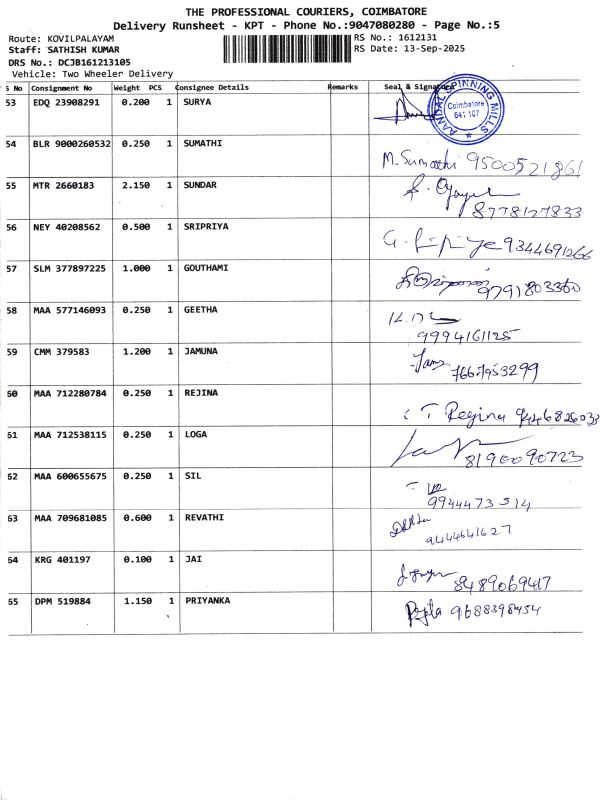 THE PROFESSIONAL COURIERS, COIMBATORE
Delivery Runsheet - KPT - Phone No.:9047080280 - Page No.:5
Route: KOVILPALAYAM
RS No.: 1612131
Staff: SATHISH KUMAR
RS Date: 13-Sep-2025
DRS No.: DCJB161213105
Vehicle: Two Wheeler Delivery
S No Consignment No Weight PCS Consignee Details Remarks Seal & Signature
53 EDQ 23908291 0.200 1 SURYA
AANDAL SPINNING MILLS
Coimbatore
641 107
54 BLR 9000260532 0.250 1 SUMATHI
M. Sumathi 9500521861
55 MTR 2660183 2.150 1 SUNDAR
8778127833
56 NEY 40208562 0.500 1 SRIPRIYA
9344691266
57 SLM 377897225 1.000 1 GOUTHAMI
9791803360
58 MAA 577146093 0.250 1 GEETHA
9994161125
59 CMM 379583 1.200 1 JAMUNA
7667953299
60 MAA 712280784 0.250 1 REJINA
T Regina 9446826033
61 MAA 712538115 0.250 1 LOGA
8190090723
62 MAA 600655675 0.250 1 SIL
9944473514
63 MAA 709681085 0.600 1 REVATHI
9444641627
64 KRG 401197 0.100 1 JAI
8489069417
65 DPM 519884 1.150 1 PRIYANKA
9688398454